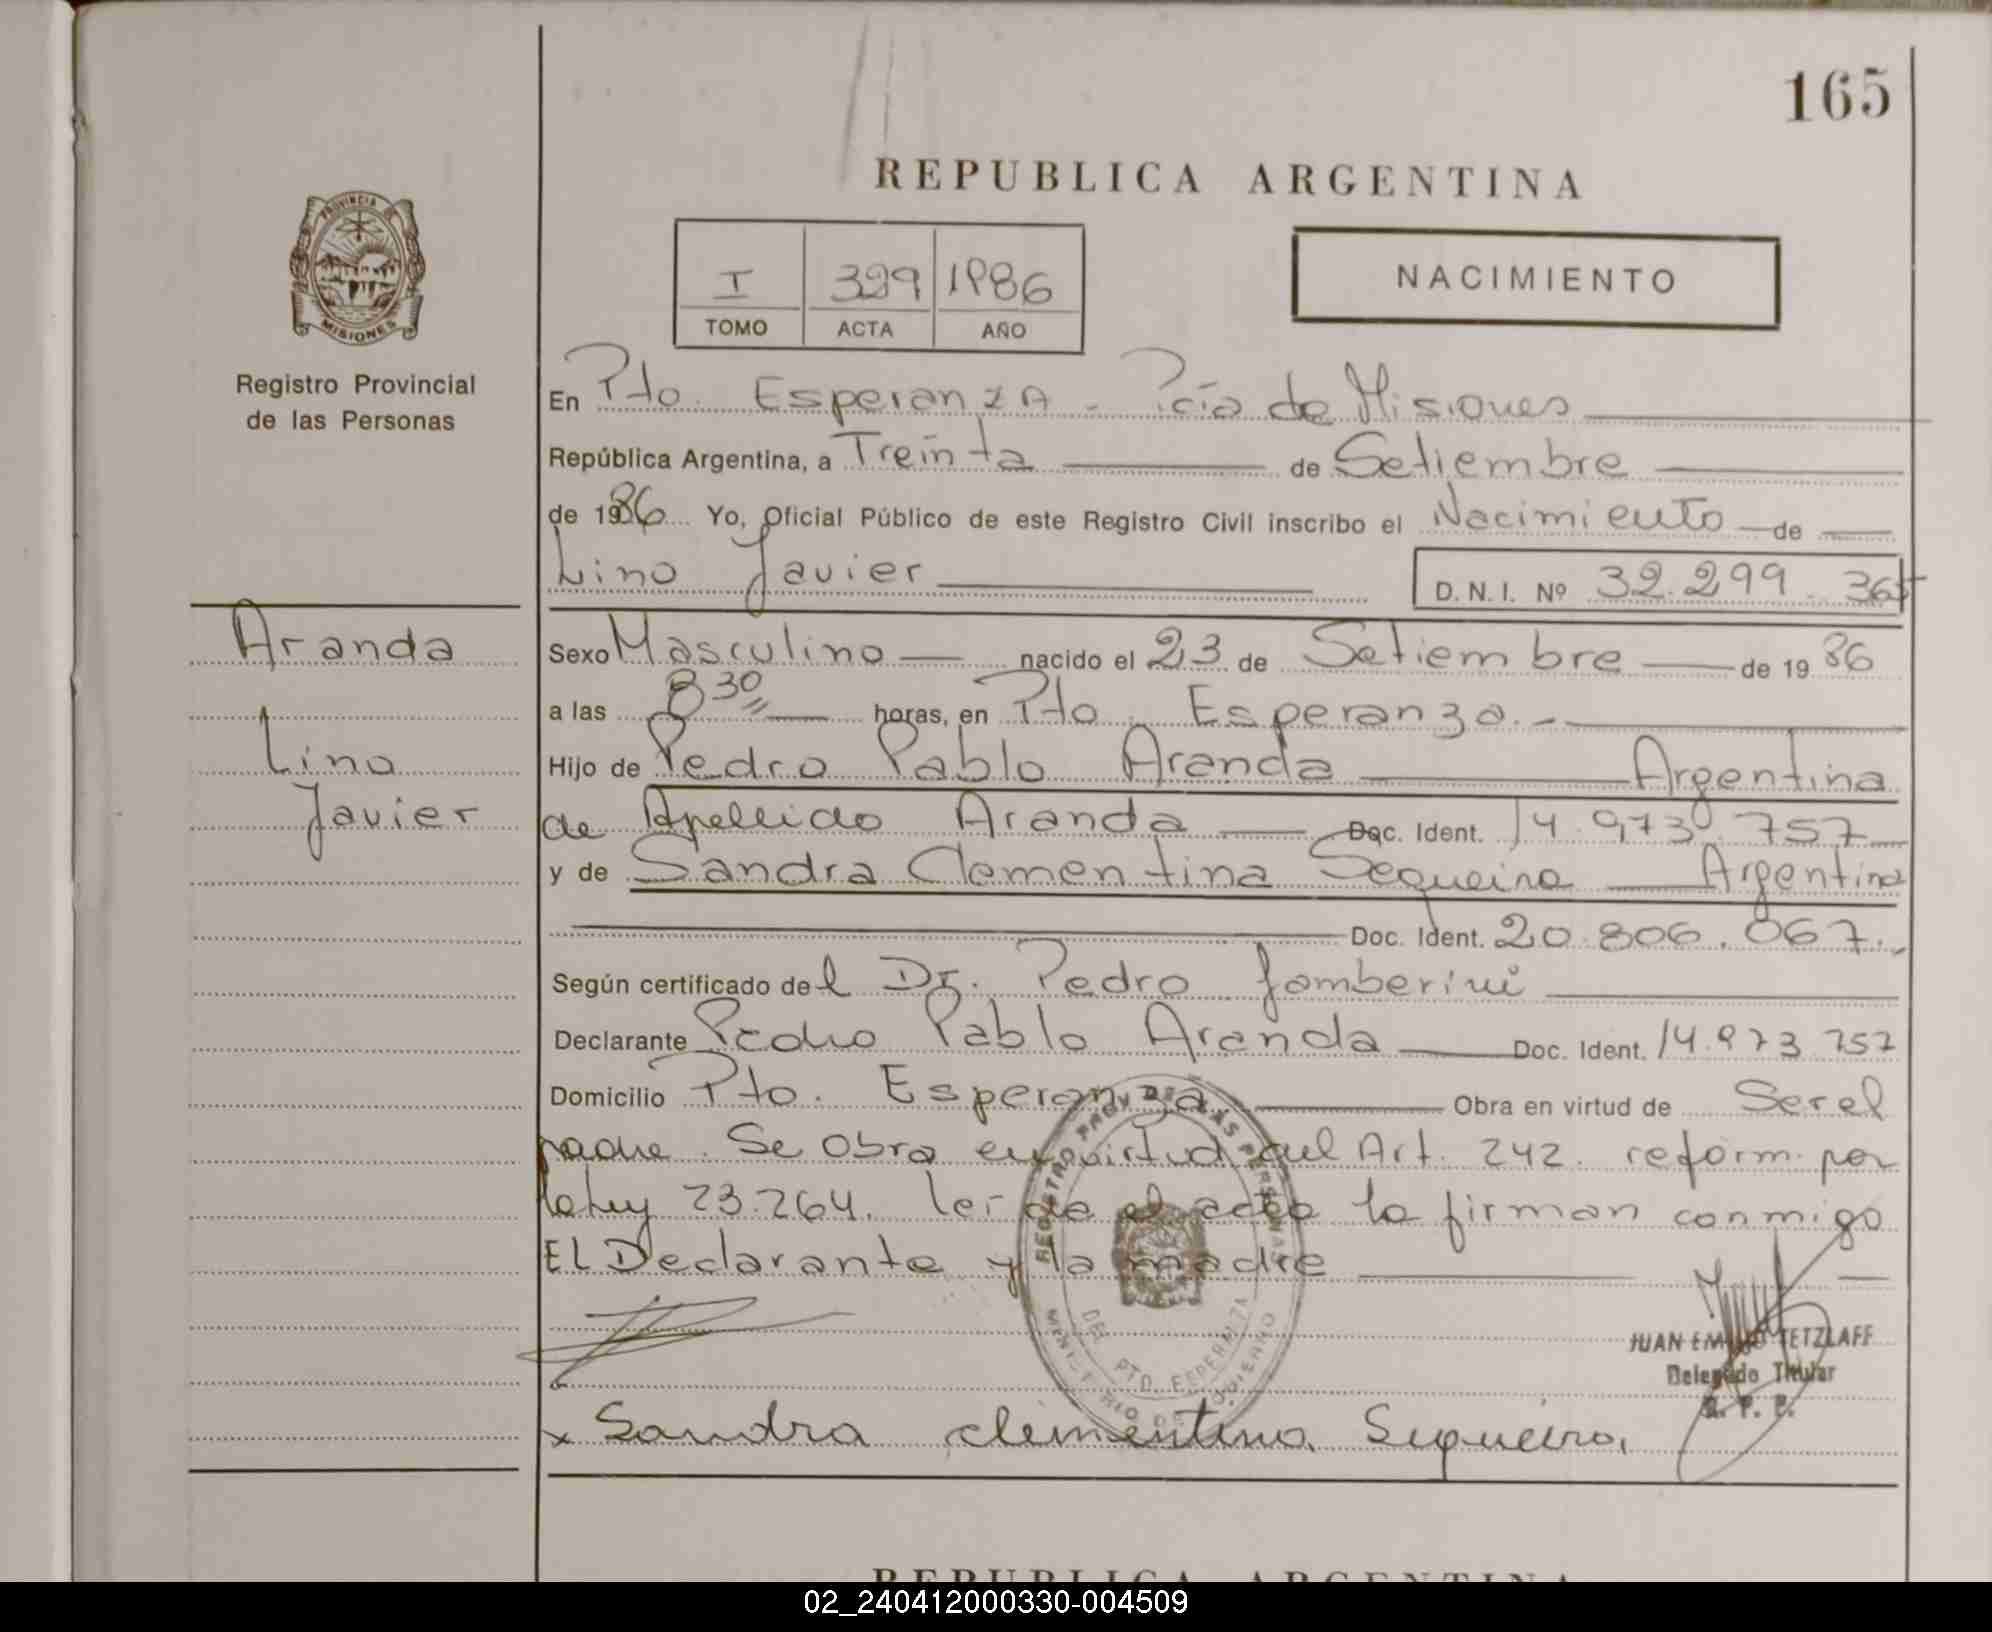 165
REPUBLICA ARGENTINA
PROVINCIA DE
MISIONES
Registro Provincial
de las Personas
I 399 1986
TOMO ACTA AÑO
NACIMIENTO
En Pto. Esperanza - Pcia de Misiones
República Argentina, a Treinta de Setiembre
de 1986 Yo, Oficial Público de este Registro Civil inscribo el Nacimiento de
Lino Javier D.N.I. Nº 32.299.365
Aranda
Lino
Javier
Sexo Masculino nacido el 23 de Setiembre de 1986
a las 8 30 horas, en Pto. Esperanza.-
Hijo de Pedro Pablo Aranda Argentina
de Apellido Aranda Doc. Ident. 14.973.757
y de Sandra Clementina Sequeira Argentina
Doc. Ident. 20.806.067.-
Según certificado del Dr. Pedro
Declarante Pedro Pablo Aranda Doc. Ident. 14.973.757
Domicilio Pto. Esperanza Obra en virtud de Ser el
padre. Se Obra en virtud del Art. 242. reform. por
la ley 23.264. leída el acta la firman conmigo
El Declarante y la madre
REGISTRO PROV. DE LAS PERSONAS
DEL. PTO. ESPERANZA
MINISTERIO DE GOBIERNO
JUAN EMILIO TETZLAFF
Delegado Titular
R. P. P.
x Sandra Clementina Sequeira.
REPUBLICA ARGENTINA
02_240412000330-004509